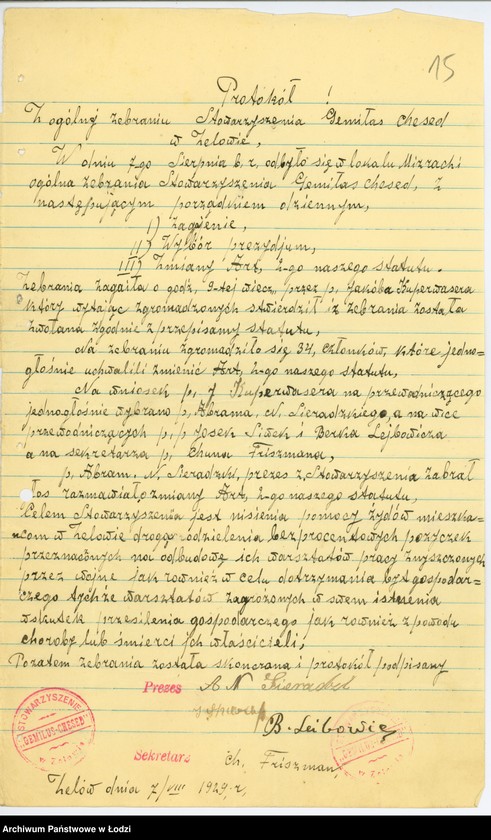 15
Protokół !
Z ogólnej zebraniu Stowarzyszenia Gemiłas Chesed
w Zelowie,
W dniu 7-go Sierpnia b, r, odbyło się w lokalu Mizrachi
ogólna zebrania Stowarzyszenia Gemiłas Chesed, z
następującym porządkiem dziennym,
I) Zagajenie,
II) Wybór prezydjum,
III) Zmiany Art, 2-go naszego statutu.
Zebrania zagaiła o godz, 9-tej wiecz, przez p, Jakóba Kuperwasera
który witając zgromadzonych stwierdził iż zebrania została
zwołana zgodnie z przepisamy statutu,
Na zebraniu zgromadziło się 34, członków, które jedno-
głośnie uchwalili zmienić Art, 2-go naszego statutu,
Na wniosek p, J Kuperwasera na przewodniczącego
jednogłośnie wybrano p, Abrama, N. Sieradzkiego, a na wice
przewodniczących p, p Josek Siwek i Berka Lejbowicza
a na sekretarza p, Chuna Friszmana,
p, Abram. N. Sieradzki, prezes z, Stowarzyszenia zabrał
głos razmawiało zmiany Art, 2-go naszego statutu,
Celem Stowarzyszenia jest niesienia pomocy żydów mieszka-
ncom w Zelowie drogą udzielenia bezprocentowych pożyczek
przeznaczonych na odbudowę ich warsztatów pracy zniszczonych
przez wojnę jak rownież w celu dotrzymania byt gospodar-
czego tychże warsztatów zagrożonych w swem istnienia
wskutek przesilenia gospodarczego jak rownież z powodu
choroby lub śmierci ich właścicieli;
Pozatem zebrania została skonczana i protokół podpisany
Prezes A N Sieradzki
B. Leibowic
STOWARZYSZENIE
"GEMILUS-CHESED"
w Zelowie
Sekretarz Ch, Friszman,
Zelów dnia 7/VIII 1929, r,
Archiwum Państwowe w Łodzi